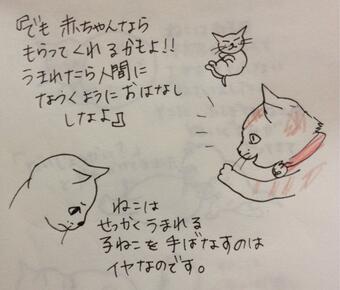 『でも 赤ちゃんなら
もらってくれるかもよ!!
うまれたら人間に
なつくようにおはなし
しなよ』
ねこは
せっかくうまれる
子ねこを手ばなすのは
イヤなのです。